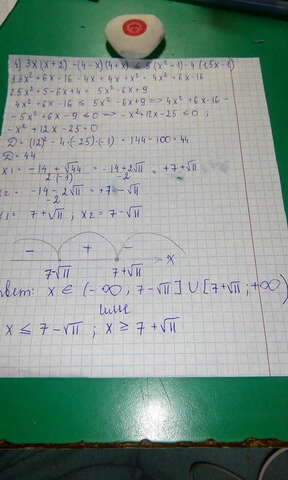 1) 3x(x+2) -(4-x)(4+x) ≤ 5(x²-1)-4(1,5x-1)
3x²+6x-16-4x+4x+x² = 4x²+6x-16
4x²+6x-16 ≤ 5x²-6x+9 => 4x²+6x-16-
-5x²+6x-9 ≤0 => -x²+12x-25 ≤0 ;
-x²+12x-25=0
D=(12)²-4·(-25)·(-1) = 144-100=44
D=44
x1 = -14+√44 / 2·(-1) = -14+2√11 / -2 = +7+√11
x2 = -14-2√11 / -2 = +7-√11
x1= 7+√11 , x2=7-√11
- + -
7-√11 7+√11 x
x ∈ (-∞; 7-√11] ∪ [7+√11; +∞)
или
x ≤ 7-√11 ; x ≥ 7+√11